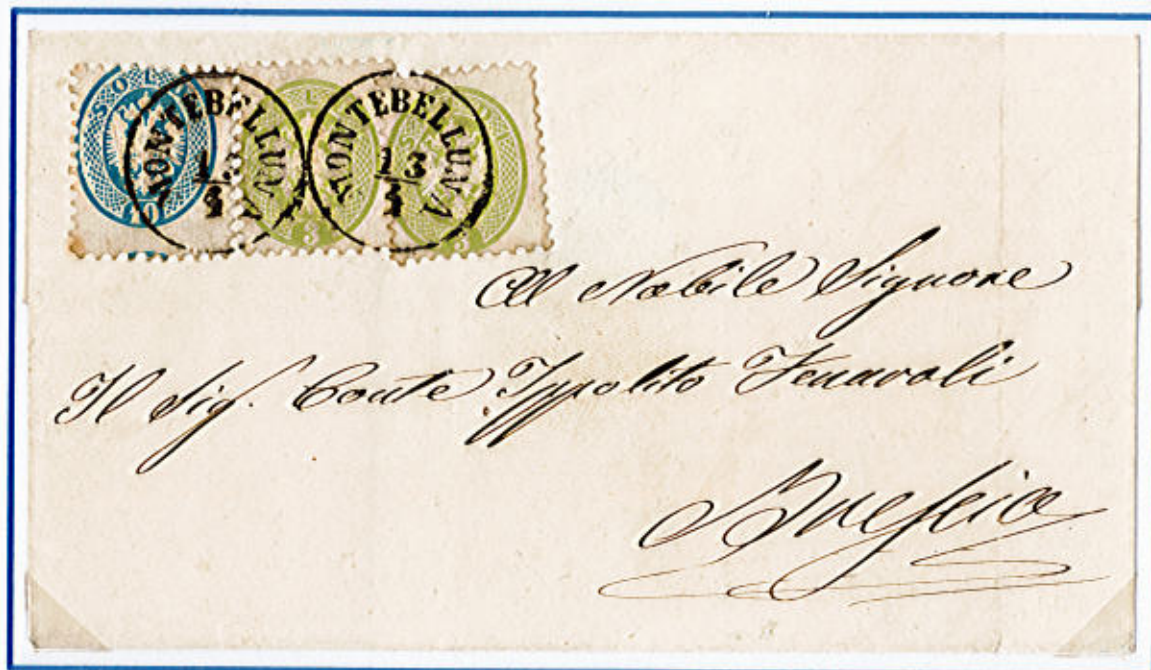 SOL
10
3
3
MONTEBELLUNA
13
3
MONTEBELLUNA
13
3
Al Nobile Signore
Il Sig. Conte Ippolito Fenaroli
Brescia